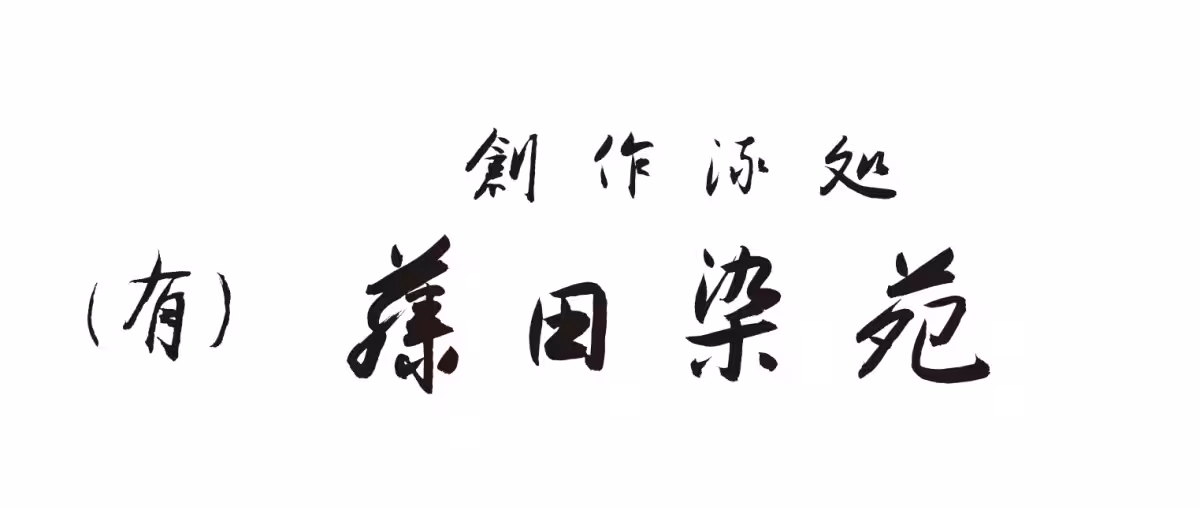 創作涿処
(有) 藤田染苑